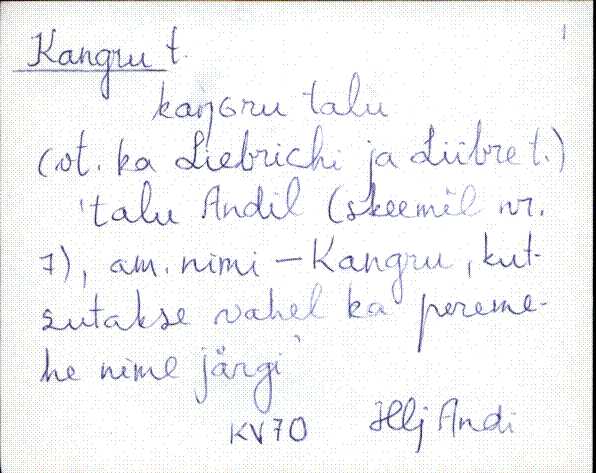 Kangru t.
kaŋGru talu
(vt. ka Liebrichi ja Liibre t.)
'talu Andil (skeemil nr.
7), am. nimi – Kangru, kut-
sutakse vahel ka pereme-
he nime järgi'
KV70 Hlj Andi